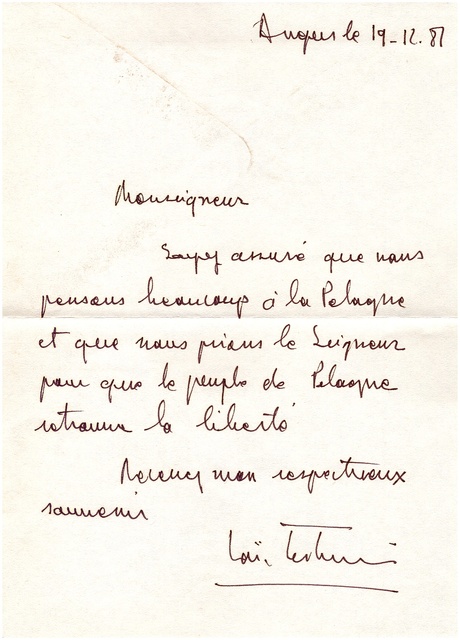 Angers le 19-12.81
Monseigneur
Soyez assuré que nous
pensons beaucoup à la Pologne
et que nous prions le Seigneur
pour que le peuple de Pologne
retrouve la liberté
Recevez mon respectueux
souvenir
Loïc